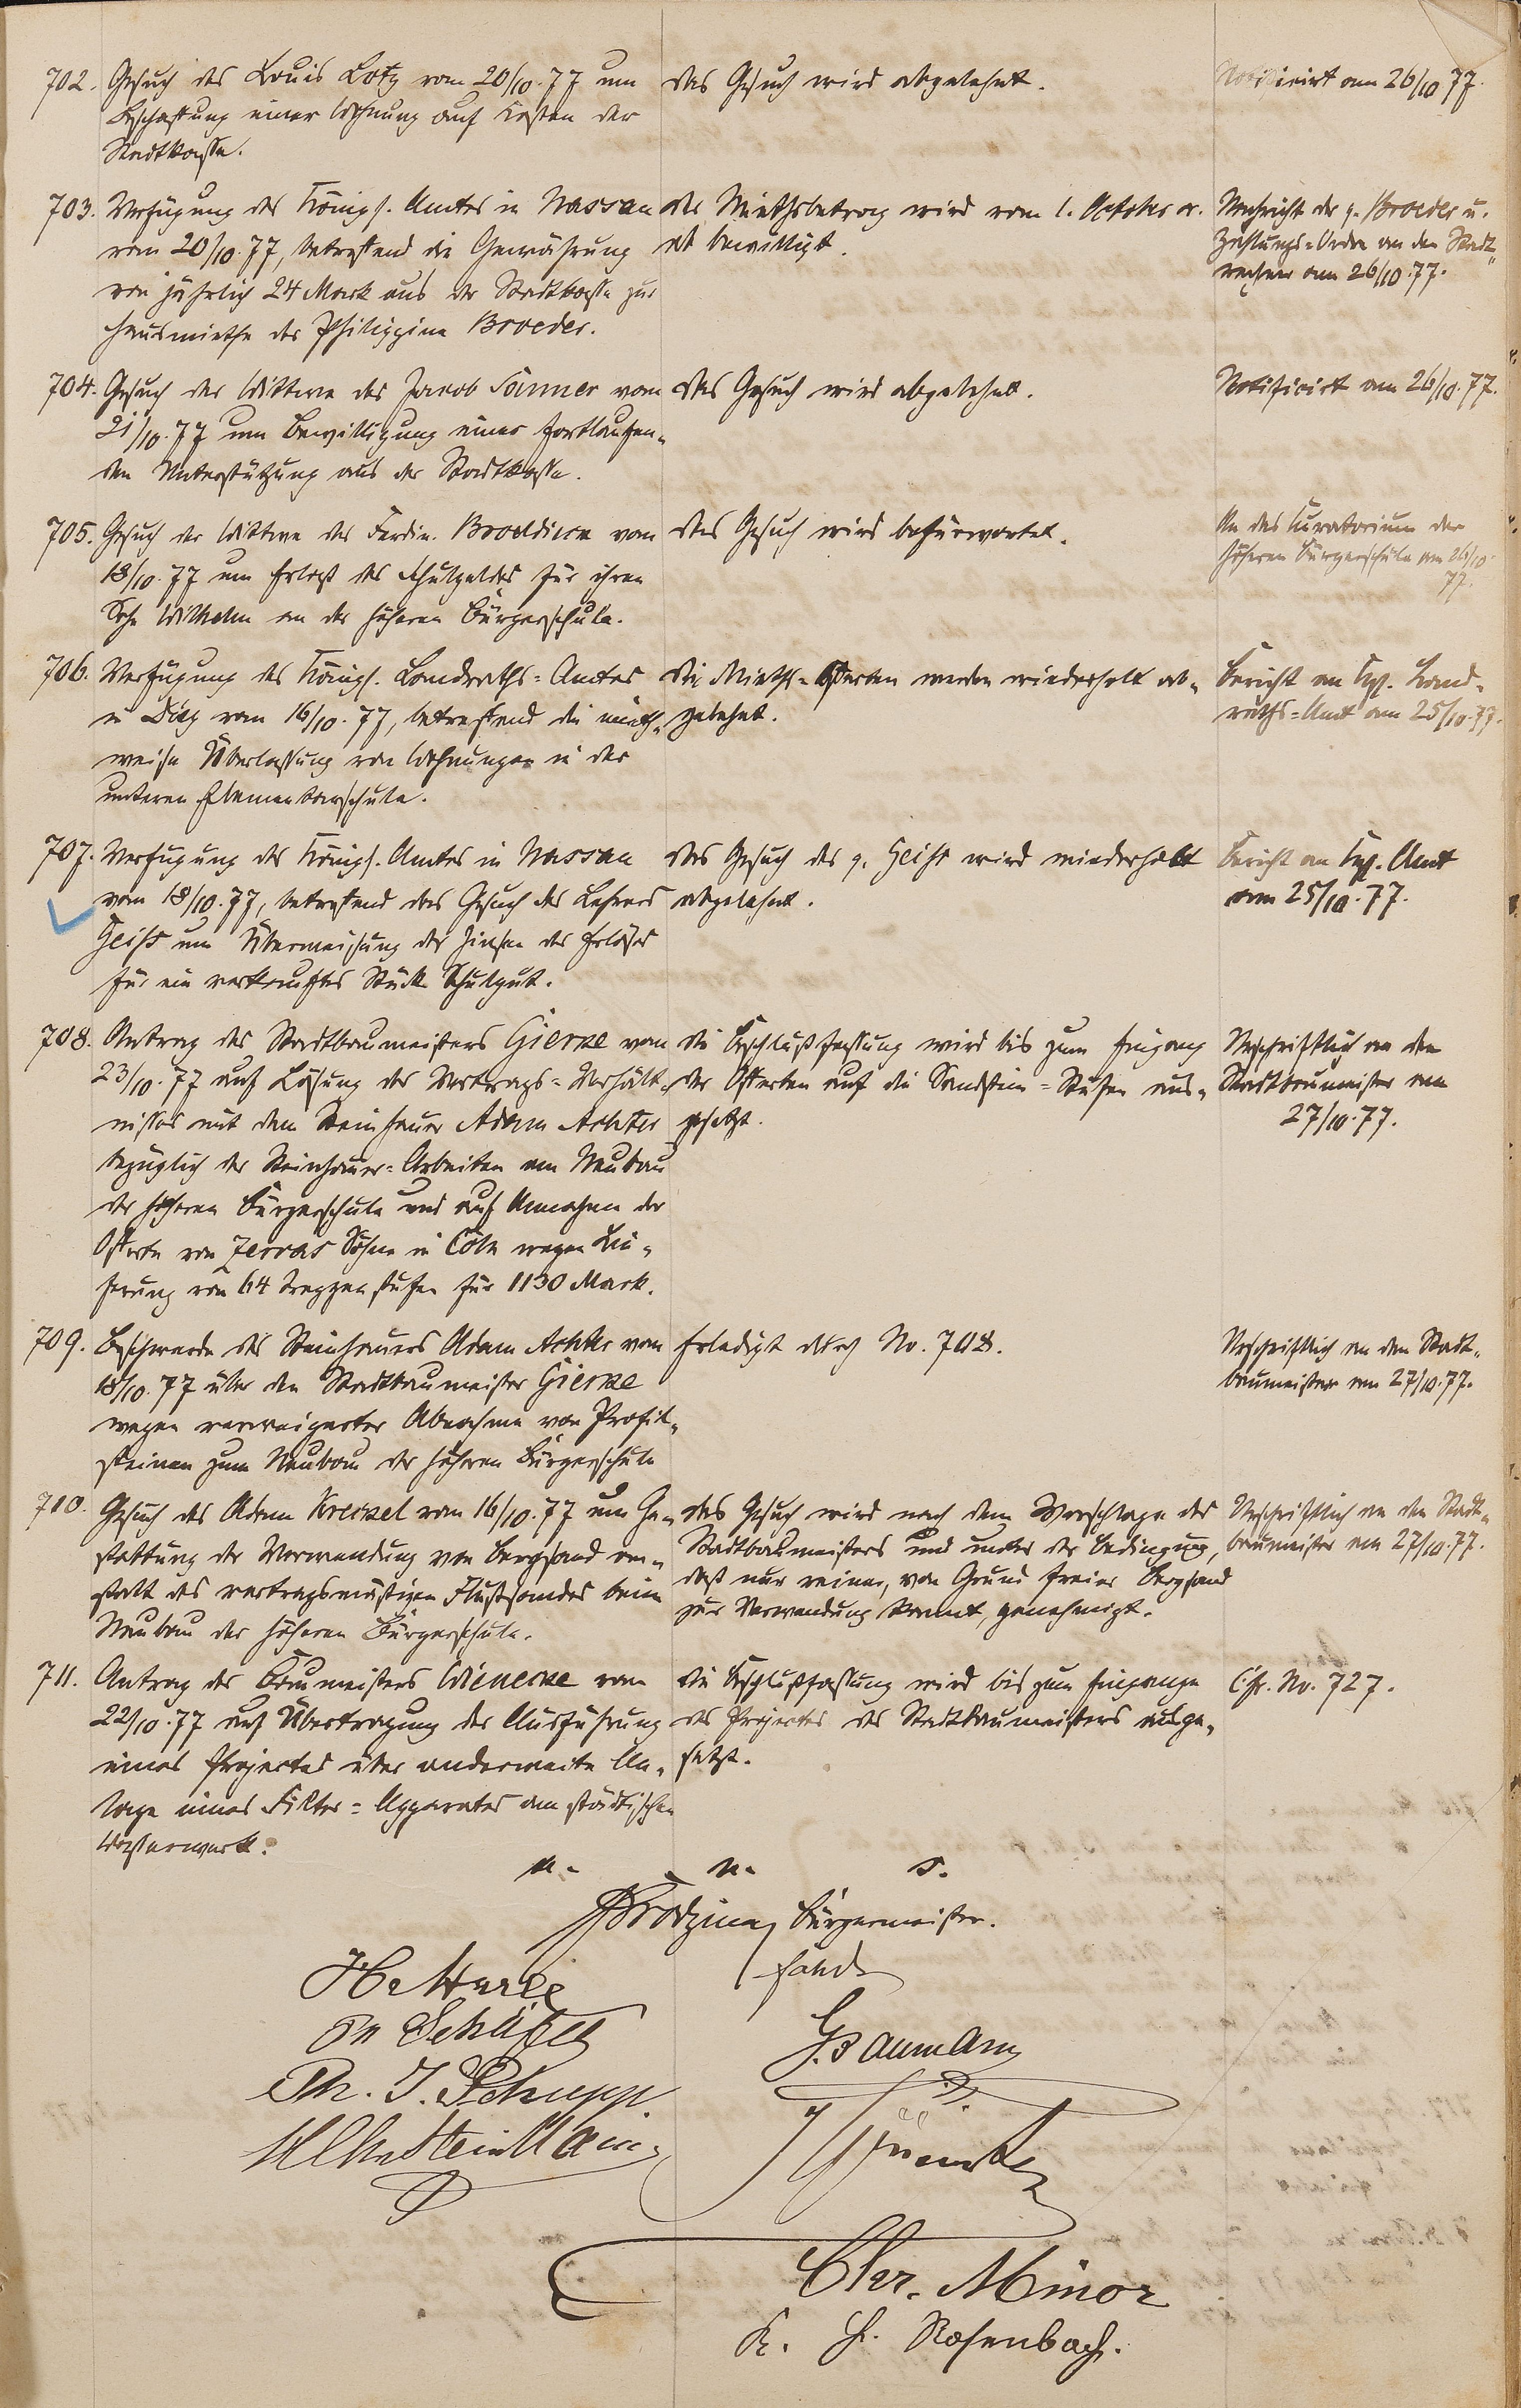 702. Gesuch des Louis Lotz vom 20/10.77 um
Beschaffung einer Wohnung auf Kosten der
Stadtkasse.
Das Gesuch wird abgelehnt.
Notificirt am 26/10 77.
703. Verfügung des Königl. Amtes in Nassau
vom 20/10.77, betreffend die Gewährung
von jährlich 24 Mark aus der Stadtkasse zur
Hausmiethe der Philippine Broeder.
Der Miethsbetrag wird vom 1. October cr.
ab bewilligt.
Nachricht der p. Broeder u.
Zahlungs-Ordre an den Stadt-
rechner am 26/10.77.
704. Gesuch der Wittwe des Jacob Sänner vom
21/10.77 um Bewilligung einer fortlaufen-
den Unterstützung aus der Stadtkasse.
Das Gesuch wird abgelehnt.
Notificirt am 26/10.77.
705. Gesuch der Wittwe des Ferdin. vom
18/10.77 um Erlaß des Schulgeldes für ihren
Sohn Wilhelm an der höheren Bürgerschule.
Das Gesuch wird befürwortet.
An das Curatorium der
höheren Bürgerschule am 26/10.
77.
706. Verfügung des Königl. Landraths-Amtes
in Diez vom 16/10.77, betreffend die mieth-
weise Überlassung von Wohnungen in der
unteren Elementarschule.
Die Mieths-Offerten werden wiederholt ab-
gelehnt.
Bericht an Kgl. Land-
raths-Amt am 25/10.77.
707. Verfügung des Königl. Amtes in Nassau
vom 18/10.77, betreffend das Gesuch des Lehrers
Geiß um Überweisung der Zinsen des Erlöses
für ein verkauftes Stück Schulgut.
Das Gesuch des p. Geiß wird wiederholt
abgelehnt.
Bericht an Kgl. Amt
am 25/10.77.
708. Antrag des Stadtbaumeisters Gierke vom
23/10.77 auf Lösung des Vertrags-Verhält-
nisses mit dem Steinhauer Adam Achter
bezüglich der Steinhauer-Arbeiten am Neubau
der höheren Bürgerschule und auf Annahme der
Offerte von Zervas Söhne in Cöln wegen Lie-
ferung von 64 Treppenstufen für 1130 Mark.
Die Beschlußfassung wird bis zum Eingang
der Offerten auf die Sandstein-Stufen aus-
gesetzt.
Urschriftlich an den
Stadtbaumeister am
27/10.77.
709. Beschwerde des Steinhauers Adam Achter vom
18/10.77 über den Stadtbaumeister Gierke
wegen verweigerter Abnahme von Profil-
steinen zum Neubau der höheren Bürgerschule
Erledigt durch No. 708.
Urschriftlich an den Stadt-
baumeister am 27/10.77.
710. Gesuch des Adam Kreckel vom 16/10.77 um Ge-
stattung der Verwendung von Bergsand an-
statt des vertragsmäßigen Flußsandes beim
Neubau der höheren Bürgerschule.
Das Gesuch wird nach dem Vorschlage des
Stadtbaumeisters und unter der Bedingung,
daß nur reiner, von Grund freier Bergsand
zur Verwendung kommt, genehmigt.
Urschriftlich an den Stadt-
baumeister am 27/10.77.
711. Antrag des Baumeisters Wienecke vom
22/10.77 auf Übertragung der Ausführung
eines Projectes über anderweite An-
lage eines Filter-Apparates am städtischen
Wasserwerk.
Die Beschlußfassung wird bis zum Eingange
des Projectes des Stadtbaumeisters ausge-
setzt.
Cfr. No. 727.
u. n. s.
Bürgermeister.
Ph. J. Schupp
G. Baumann
Chr. Minor
K. H. Rosenbach.